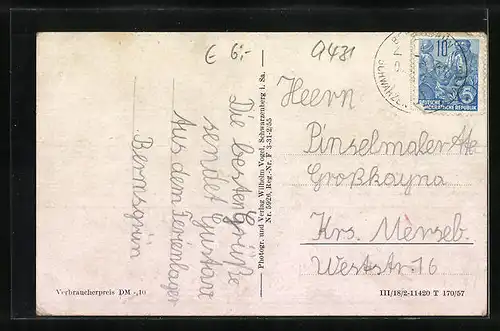 € 6,- A431
Die besten Grüße
sendet Gustav
Aus dem Ferienlager
Bernsgrün
Photogr. und Verlag Wilhelm Vogel, Schwarzenberg i. Sa.
Nr. 5926, Reg.-Nr. F 3-31-2/55
10
5
DEUTSCHE
DEMOKRATISCHE REPUBLIK
Heern
Pinselmaler
Großkayna
Krs. Merseb.
Weststr. 16
Verbraucherpreis DM -,10
III/18/2-11420 T 170/57